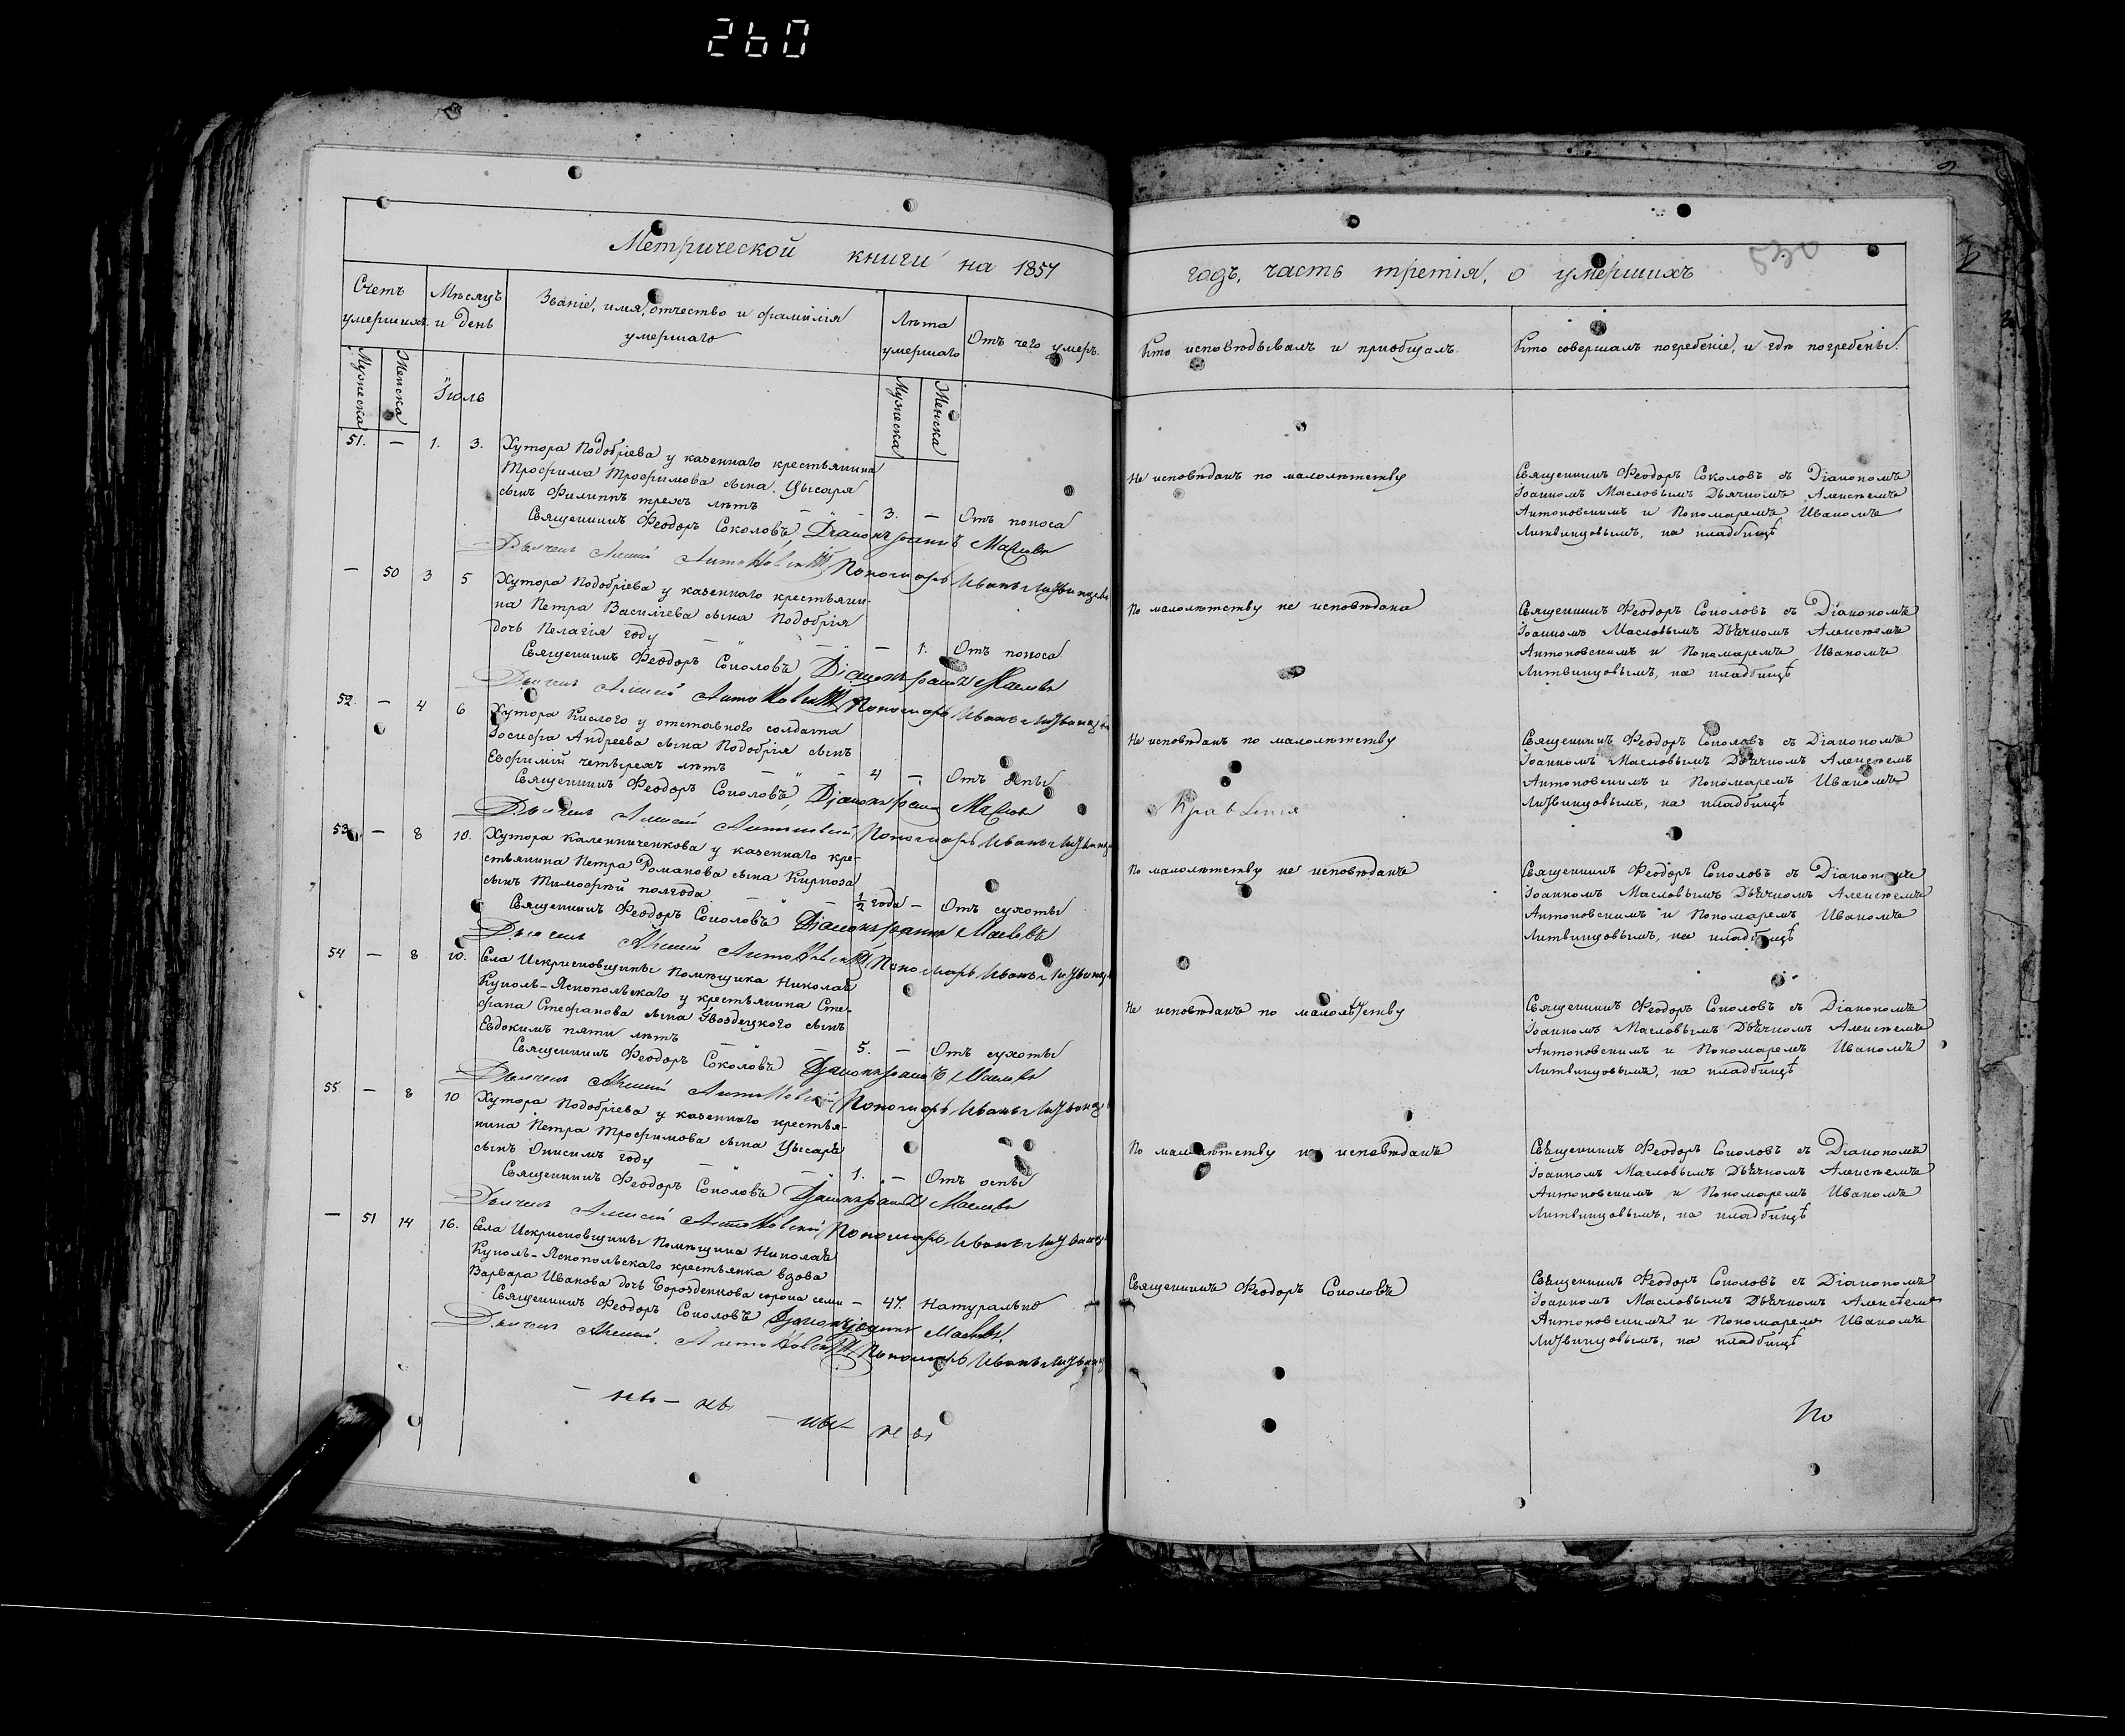 260
530
Метрической книги на 1857
годъ, часть третія, о умершихъ
Счетъ умершихъ.
Мѣсяцъ и день
Званіе, имя, отчество и фамилія умершаго
Лѣта умершаго
Отъ чего умеръ.
Кто исповѣдывалъ и пріобщалъ.
Кто совершалъ погребеніе, и гдѣ погребены.
Мужеска
Женска
Іюль
Мужеска
Женска
51. — 1. 3. Хутора Подобріева у казеннаго крестьянина
Трофима Трофимова сына Цысаря
сынъ Филиппъ трехъ лѣтъ — 3. — Отъ поноса
Священникъ Феодоръ Соколовъ, Діаконъ Іоаннъ Масловъ
Дьячекъ Алексѣй Антоновскій Пономарь Иванъ Литвинцовъ
Не исповѣданъ по малолѣтству
Священникъ Феодоръ Соколовъ съ Діакономъ
Іоанномъ Масловымъ Дьячкомъ Алексѣемъ
Антоновскимъ и Пономаремъ Иваномъ
Литвинцовымъ, на кладбищѣ
— 50 3 5 Хутора Подобріева у казеннаго крестьяни-
на Петра Василіева сына Подобрія
дочь Пелагія году — — 1. Отъ поноса
Священникъ Феодоръ Соколовъ, Діаконъ Іоаннъ Масловъ
Дьячекъ Алексѣй Антоновскій Пономарь Иванъ Литвинцовъ
По малолѣтству не исповѣдана
Священникъ Феодоръ Соколовъ съ Діакономъ
Іоанномъ Масловымъ Дьячкомъ Алексѣемъ
Антоновскимъ и Пономаремъ Иваномъ
Литвинцовымъ, на кладбищѣ
52. — 4 6 Хутора Кислого у отставного солдата
Іосифа Андреева сына Подобрія сынъ
Евфимій четырехъ лѣтъ — 4 — Отъ оспы
Священникъ Феодоръ Соколовъ, Діаконъ Іоаннъ Масловъ
Дьячекъ Алексѣй Антоновскій Пономарь Иванъ Литвинцовъ
Не исповѣданъ по малолѣтству
Священникъ Феодоръ Соколовъ съ Діакономъ
Іоанномъ Масловымъ Дьячкомъ Алексѣемъ
Антоновскимъ и Пономаремъ Иваномъ
Литвинцовымъ, на кладбищѣ
53. — 8 10. Хутора Калениченкова у казеннаго кре-
стьянина Петра Романова сына Кирноза
сынъ Тимофѣй полгода — ½ года — Отъ сухоты
Священникъ Феодоръ Соколовъ Діаконъ Іоаннъ Масловъ
Дьячекъ Алексѣй Антоновскій Пономарь Иванъ Литвинцовъ
По малолѣтству не исповѣданъ
Священникъ Феодоръ Соколовъ съ Діакономъ
Іоанномъ Масловымъ Дьячкомъ Алексѣемъ
Антоновскимъ и Пономаремъ Иваномъ
Литвинцовымъ, на кладбищѣ
54 — 8 10. Села Искрисковщины Помѣщика Николая
Куколь-Яснопольскаго у крестьянина Сте-
фана Стефанова сына Гвоздецкого сынъ
Евдокимъ пяти лѣтъ — 5. — Отъ сухоты
Священникъ Феодоръ Соколовъ Діаконъ Іоаннъ Масловъ
Дьячекъ Алексѣй Антоновскій Пономарь Иванъ Литвинцовъ
Не исповѣданъ по малолѣтству
Священникъ Феодоръ Соколовъ съ Діакономъ
Іоанномъ Масловымъ Дьячкомъ Алексѣемъ
Антоновскимъ и Пономаремъ Иваномъ
Литвинцовымъ, на кладбищѣ
55. — 8 10 Хутора Подобріева у казеннаго крестья-
нина Петра Трофимова сына Цысаря
сынъ Онисимъ году — 1. — Отъ оспы
Священникъ Феодоръ Соколовъ Діаконъ Іоаннъ Масловъ
Дьячекъ Алексѣй Антоновскій Пономарь Иванъ Литвинцовъ
По малолѣтству не исповѣданъ
Священникъ Феодоръ Соколовъ съ Діакономъ
Іоанномъ Масловымъ Дьячкомъ Алексѣемъ
Антоновскимъ и Пономаремъ Иваномъ
Литвинцовымъ, на кладбищѣ
— 51 14 16. Села Искрисковщины Помѣщика Николая
Куколь-Яснопольскаго крестьянка вдова
Варвара Иванова дочь Борозденкова сорока семи — 47. Натурально
Священникъ Феодоръ Соколовъ Діаконъ Іоаннъ Масловъ.
Дьячекъ Алексѣй Антоновскій Пономарь Иванъ Литвинцовъ
Священникъ Феодоръ Соколовъ
Священникъ Феодоръ Соколовъ съ Діакономъ
Іоанномъ Масловымъ Дьячкомъ Алексѣемъ
Антоновскимъ и Пономаремъ Иваномъ
Литвинцовымъ, на кладбищѣ
По